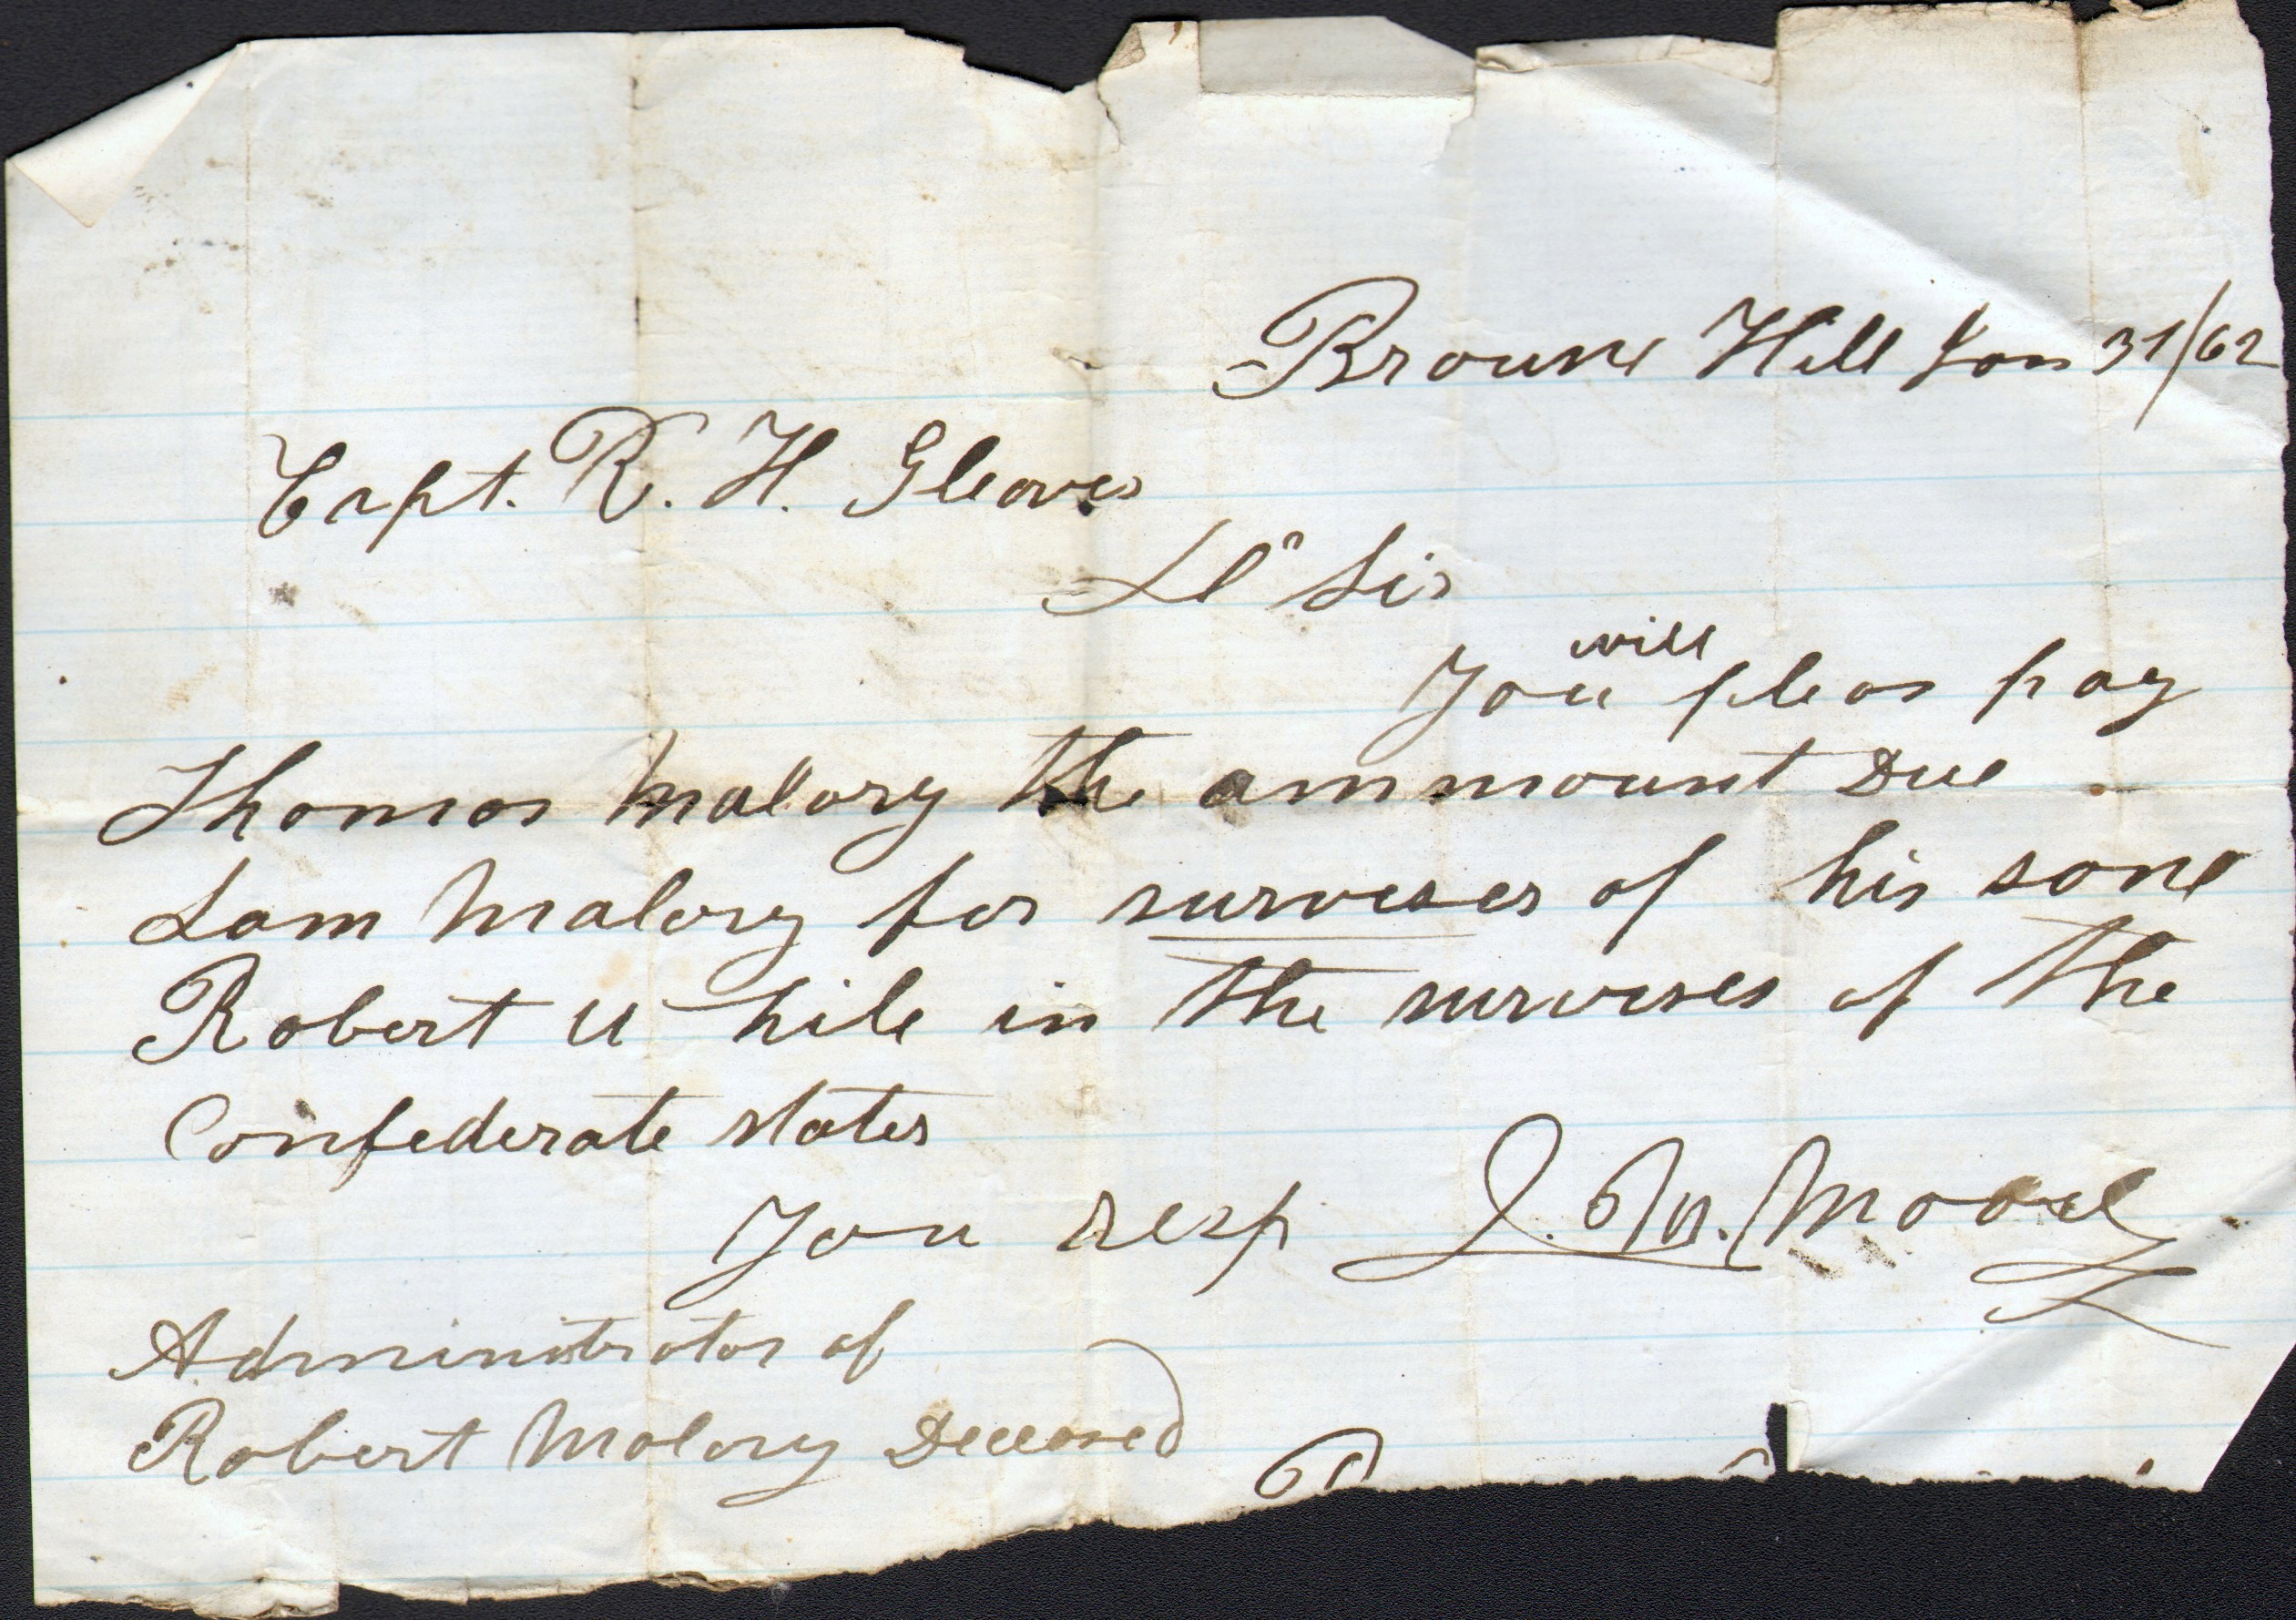 Browns Hill Jan 31/62
Capt. R. H. Gleaves
Dr Sir
will
You pleas pay
Thomas Mallory the ammount Due
Sam Malory for surveses of his sone
Robert while in the surveses of the
Confederate states
You resp J. M. Moore
Administrator of
Robert Malory Deceased